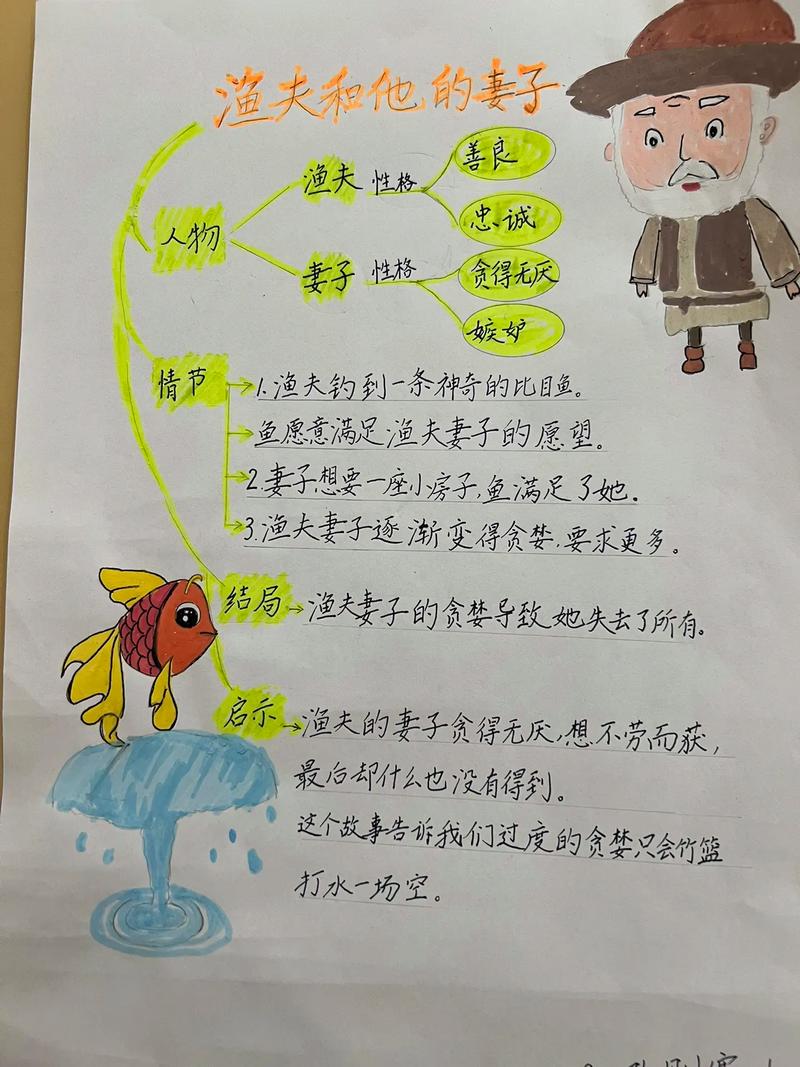 渔夫和他的妻子
人物
渔夫 性格
善良
忠诚
妻子 性格
贪得无厌
嫉妒
情节
1.渔夫钓到一条神奇的比目鱼。
鱼愿意满足渔夫妻子的愿望。
2.妻子想要一座小房子,鱼满足了她.
3.渔夫妻子逐渐变得贪婪,要求更多。
结局
渔夫妻子的贪婪导致她失去了所有。
启示
渔夫的妻子贪得无厌,想不劳而获,
最后却什么也没有得到。
这个故事告诉我们过度的贪婪只会竹篮
打水一场空。